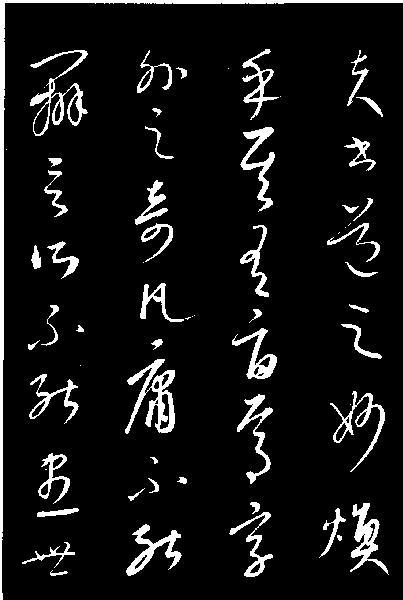 夫書道之妙煥
乎其有旨焉字
外之奇凡庸不能
辨言所不能盡世